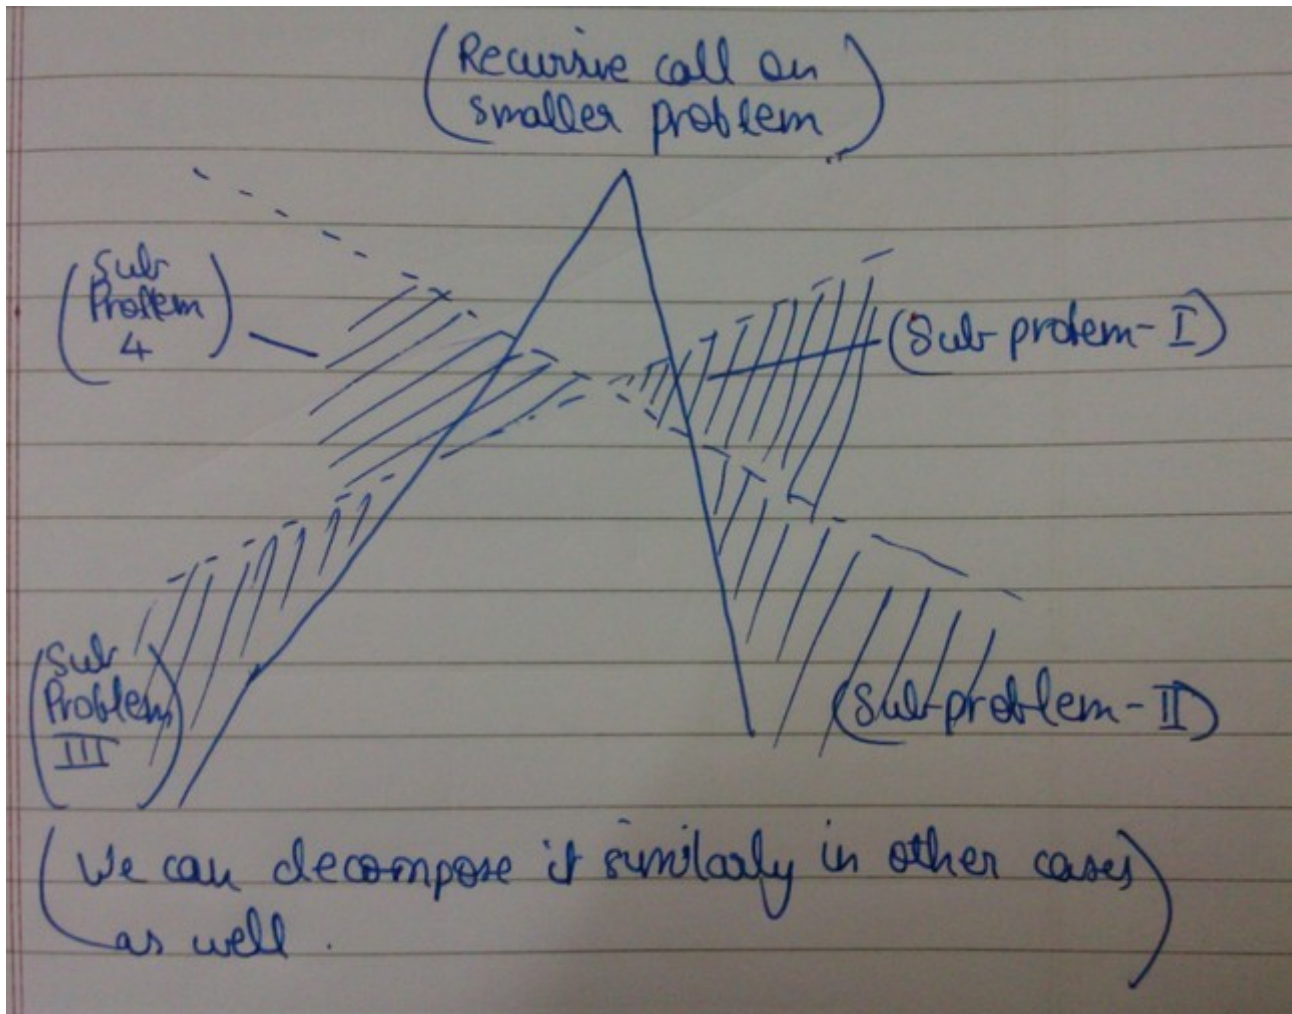 (Recursive call on
smaller problem)
(Sub
Problem
4)
(Sub protem-I)
(Sub
Problem
III)
(Sub-problem-II)
(We can decompose it similarly in other cases
as well.)